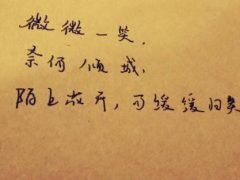 微微一笑，
奈何倾城，
陌上花开，可缓缓归矣